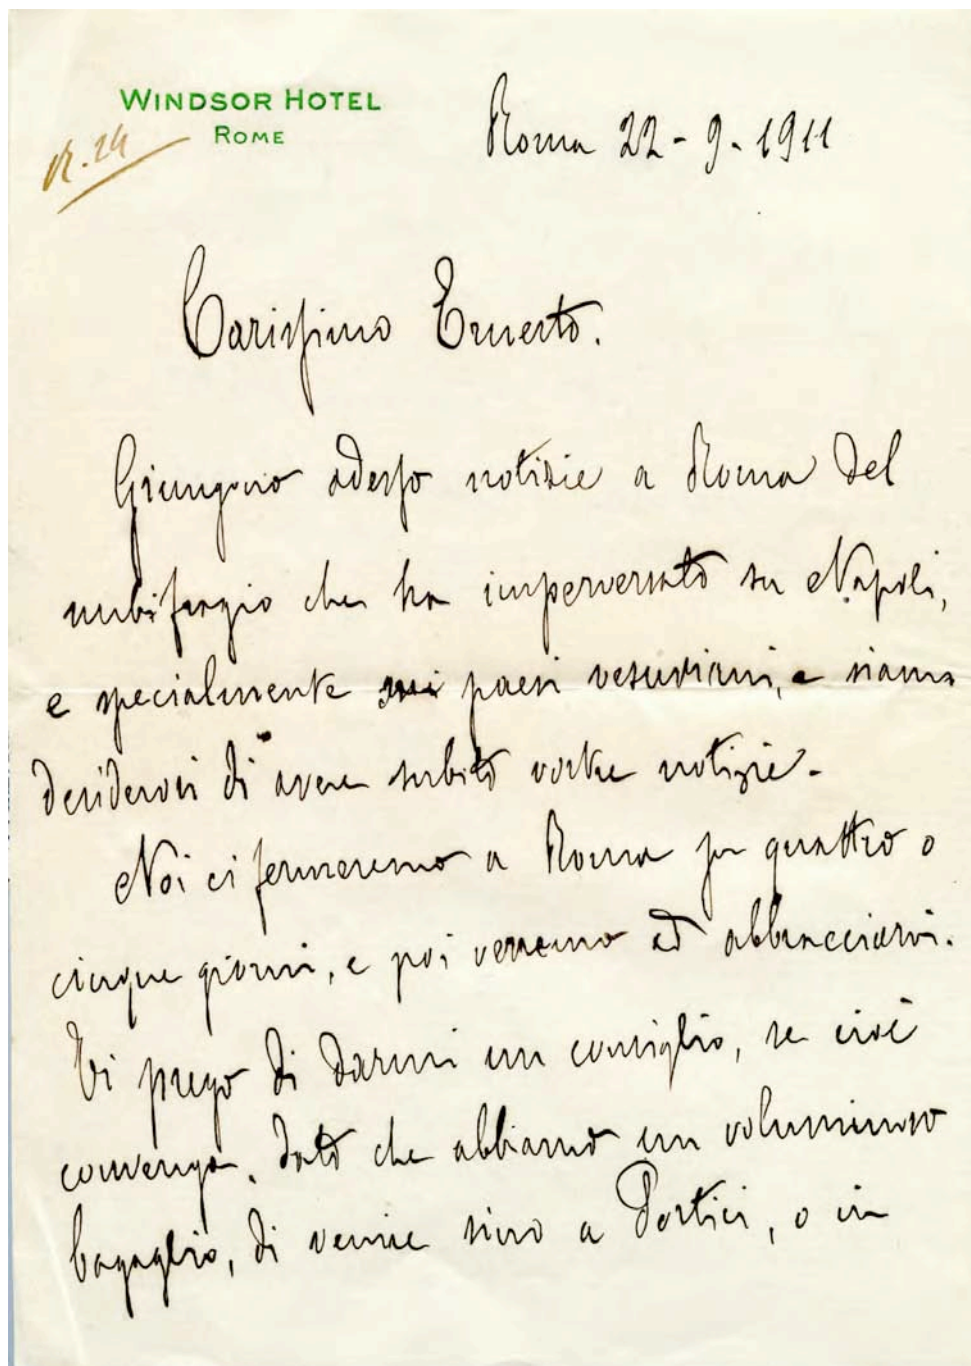 WINDSOR HOTEL
ROME
Roma 22-9-1911
Carissimo Ernesto.
Giungono adesso notizie a Roma del
nubifragio che ha imperversato su Napoli,
e specialmente paesi vesuviani, e siamo
desiderosi di avere subito vostre notizie.
Noi ci fermeremo a Roma per quattro o
cinque giorni, e poi verremo ad abbracciarvi.
Vi prego di darmi un consiglio, se cioè
convenga, dato che abbiamo un voluminoso
bagaglio, di venire sino a Portici, o in